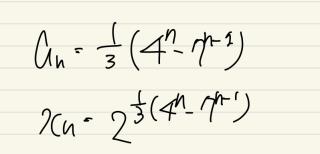 aₙ = 1/3 (4ⁿ - 7ⁿ⁻¹)
xₙ = 2^(1/3 (4ⁿ - 7ⁿ⁻¹))